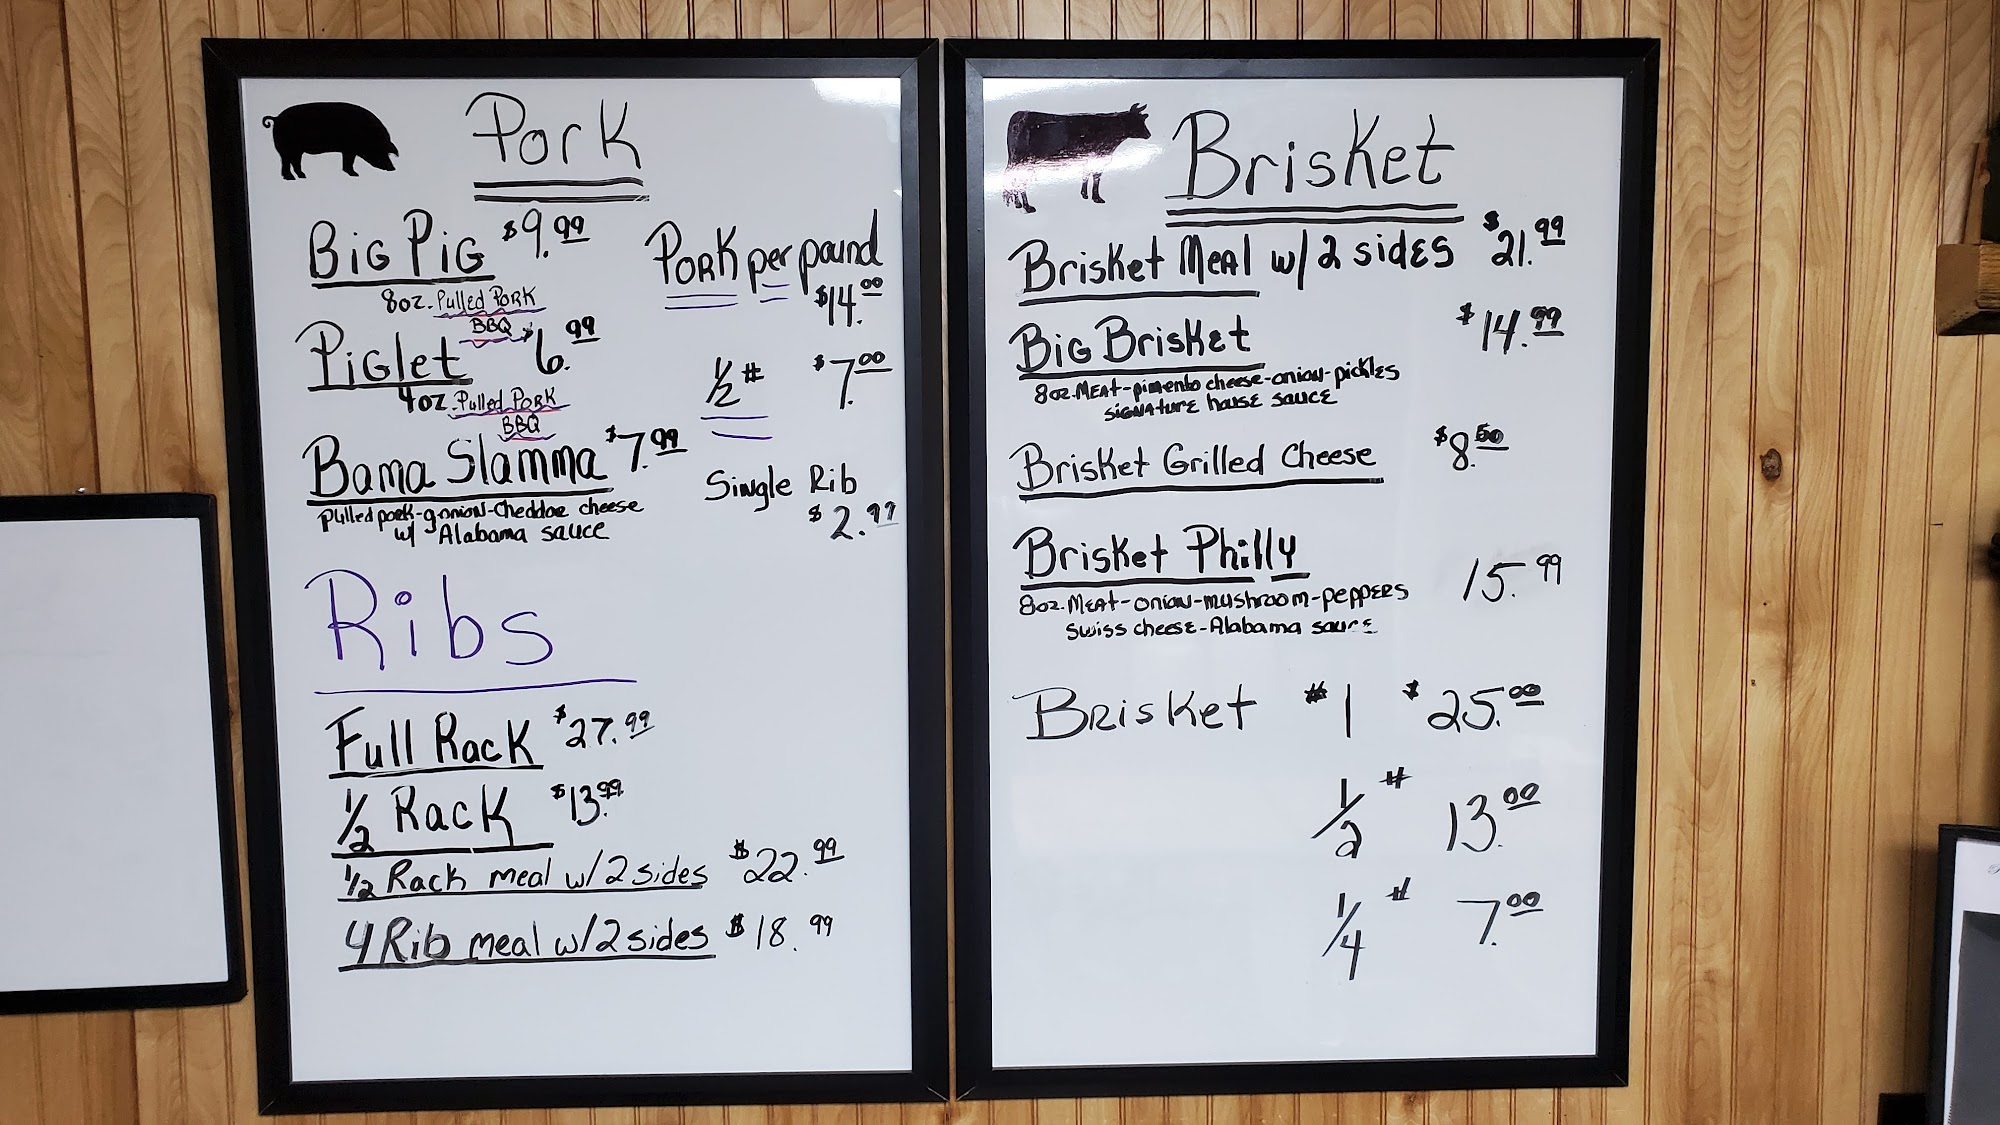 Pork
Big Pig $9.99
8oz. Pulled Pork
BBQ
Piglet $6.99
4oz. Pulled Pork
BBQ
Bama Slamma $7.99
pulled pork-g.onion-cheddar cheese
w/ Alabama sauce
Pork per pound
$14.00
1/2 # $7.00
Single Rib
$2.99
Ribs
Full Rack $27.99
1/2 Rack $13.99
1/2 Rack meal w/2 sides $22.99
4 Rib meal w/2 sides $18.99
Brisket
Brisket Meal w/ 2 sides $21.99
Big Brisket $14.99
8oz. Meat-pimento cheese-onion-pickles
signature house sauce
Brisket Grilled Cheese $8.50
Brisket Philly 15.99
8oz. Meat-onion-mushroom-peppers
swiss cheese-Alabama sauce
Brisket #1 $25.00
1/2 # 13.00
1/4 # 7.00